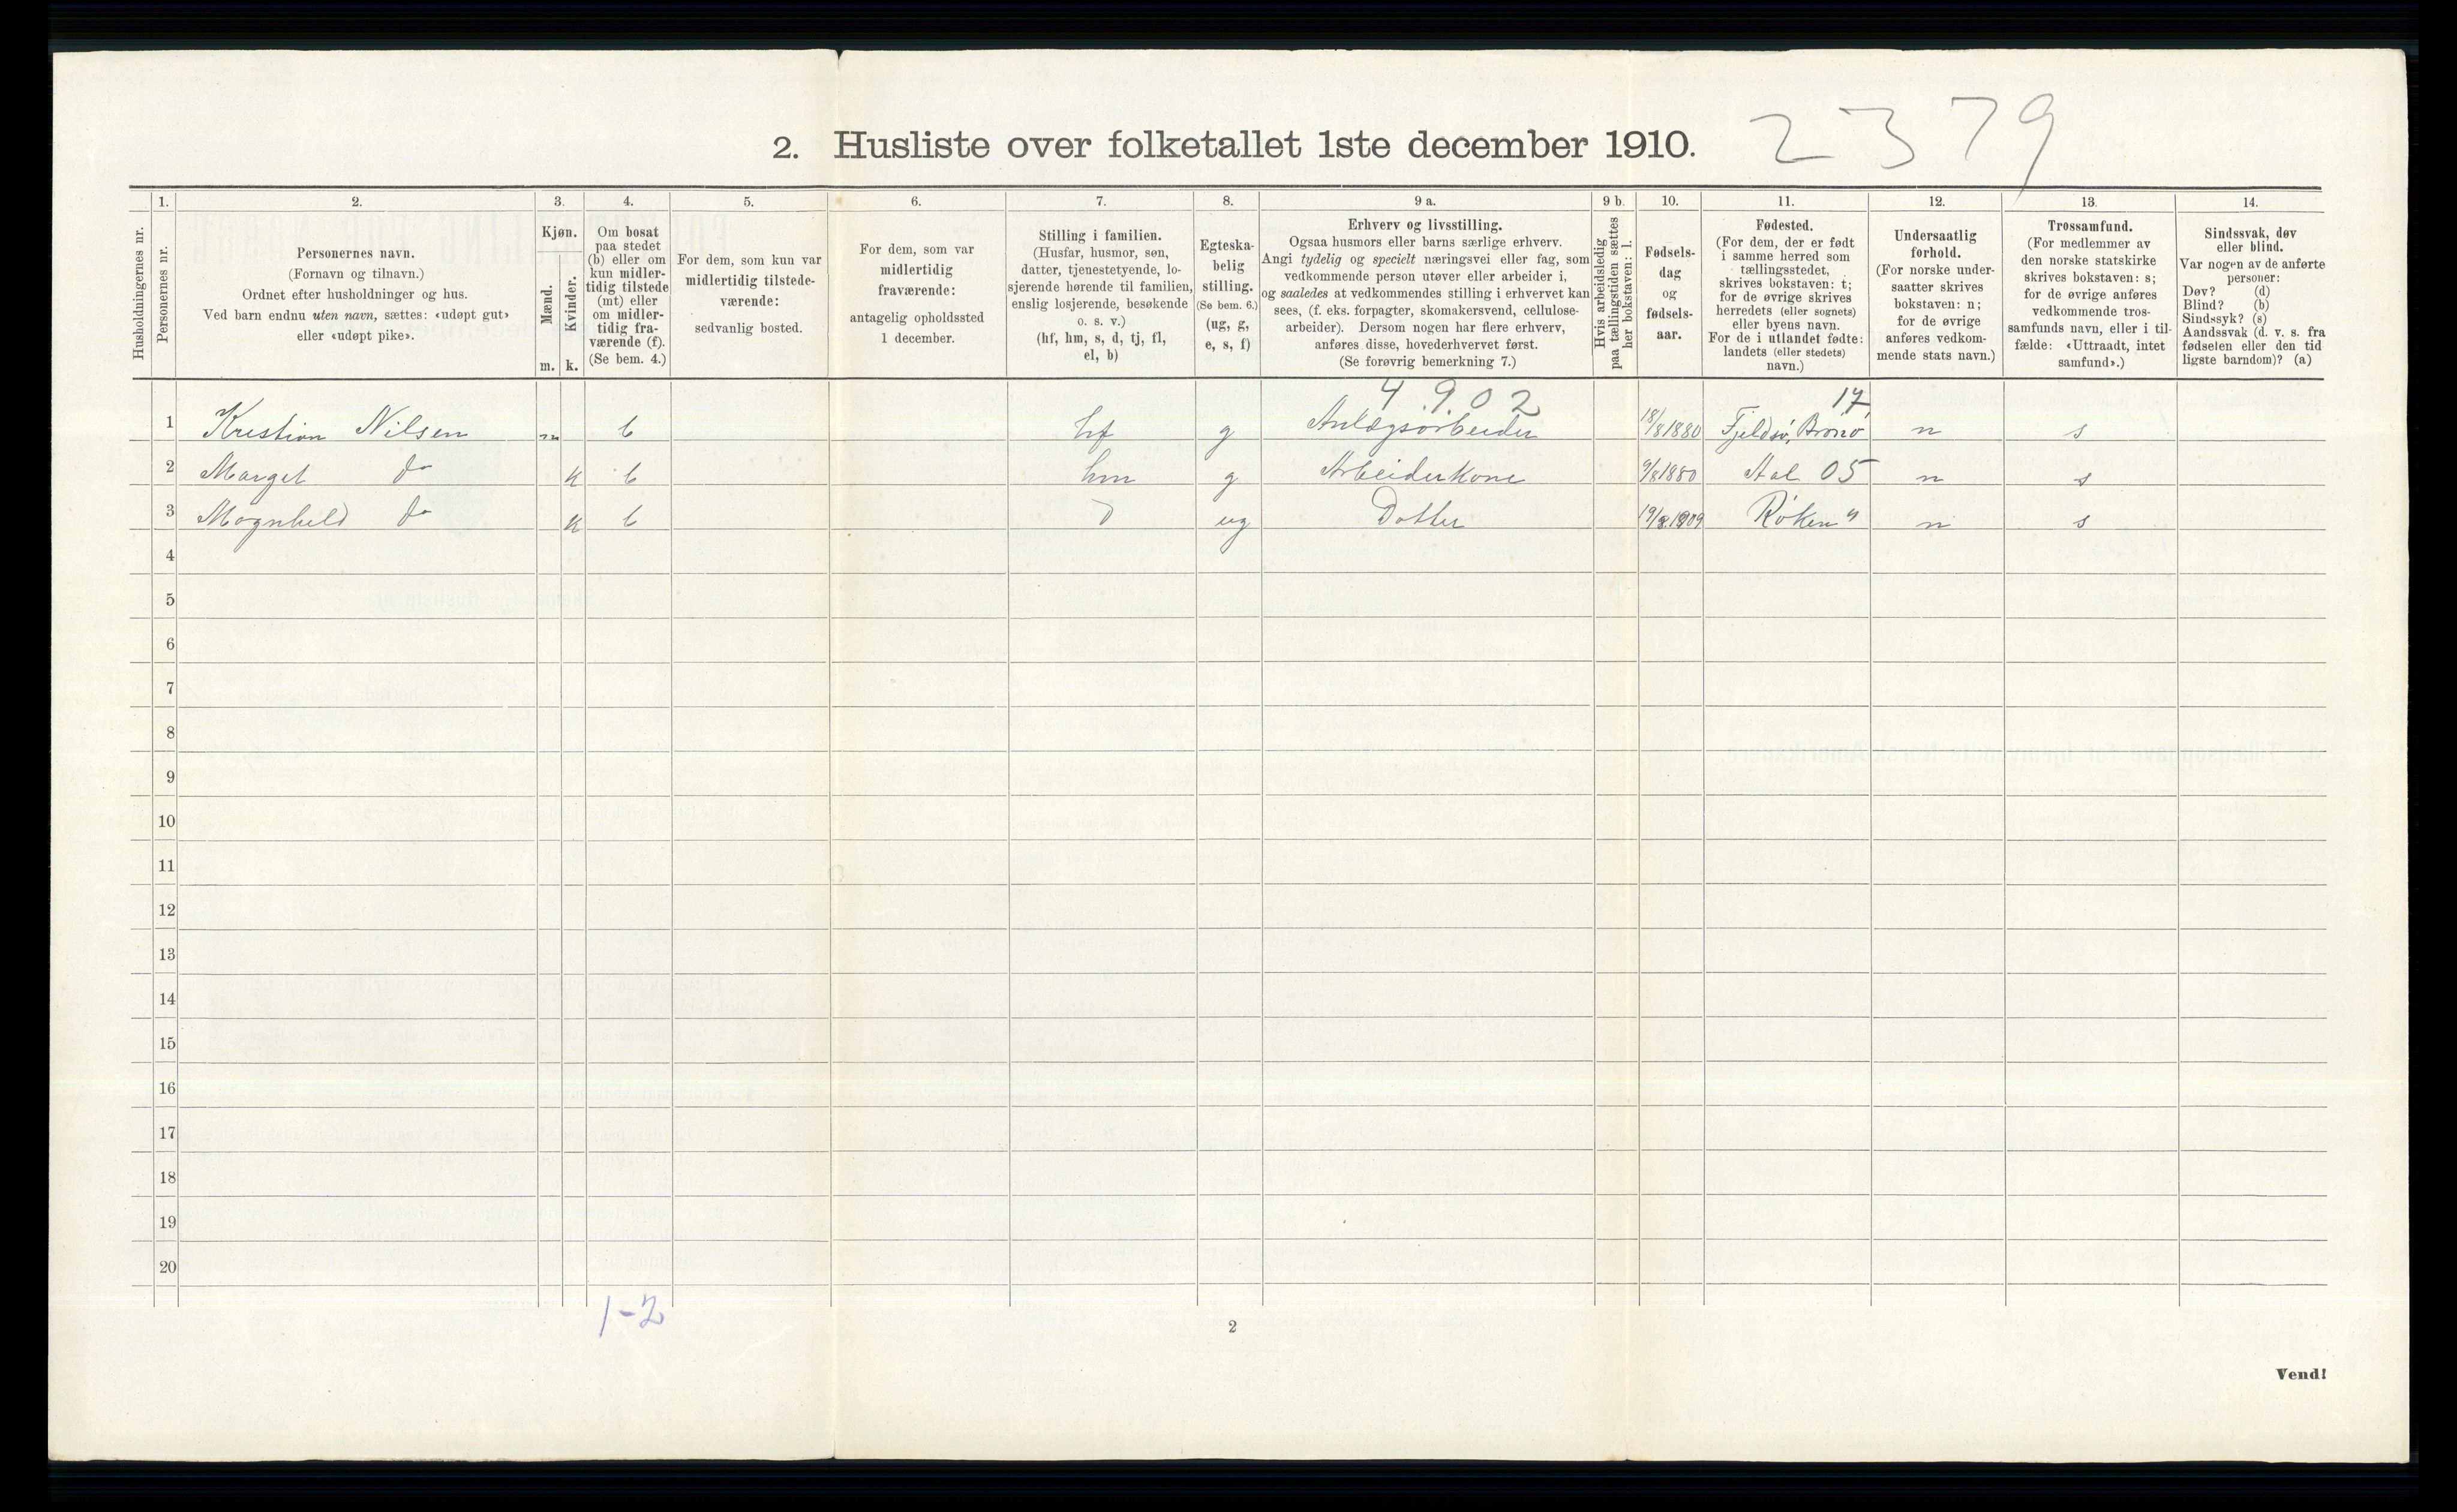 2. Husliste over folketallet 1ste december 1910. 2379
Husholdningernes nr.
1. Personernes nr.
2. Personernes navn.
(Fornavn og tilnavn.)
Ordnet efter husholdninger og hus.
Ved barn endnu uten navn, sættes: «udøpt gut»
eller «udøpt pike».
3. Kjøn.
Mænd. m.
Kvinder. k.
4. Om bosat
paa stedet
(b) eller om
kun midler-
tidig tilstede
(mt) eller
om midler-
tidig fra-
værende (f).
(Se bem. 4.)
5. For dem, som kun var
midlertidig tilstede-
værende:
sedvanlig bosted.
6. For dem, som var
midlertidig
fraværende:
antagelig opholdssted
1 december.
7. Stilling i familien.
(Husfar, husmor, søn,
datter, tjenestetyende, lo-
sjerende hørende til familien,
enslig losjerende, besøkende
o. s. v.)
(hf, hm, s, d, tj, fl,
el, b)
8. Egteska-
belig
stilling.
(Se bem. 6.)
(ug, g,
e, s, f)
9 a. Erhverv og livsstilling.
Ogsaa husmors eller barns særlige erhverv.
Angi tydelig og specielt næringsvei eller fag, som
vedkommende person utøver eller arbeider i,
og saaledes at vedkommendes stilling i erhvervet kan
sees, (f. eks. forpagter, skomakersvend, cellulose-
arbeider). Dersom nogen har flere erhverv,
anføres disse, hovederhvervet først.
(Se forøvrig bemerkning 7.)
9 b. Hvis arbeidsledig
paa tællingstiden sættes
her bokstaven: l.
10. Fødsels-
dag
og
fødsels-
aar.
11. Fødested.
(For dem, der er født
i samme herred som
tællingsstedet,
skrives bokstaven: t;
for de øvrige skrives
herredets (eller sognets)
eller byens navn.
For de i utlandet fødte:
landets (eller stedets)
navn.)
12. Undersaatlig
forhold.
(For norske under-
saatter skrives
bokstaven: n;
for de øvrige
anføres vedkom-
mende stats navn.)
13. Trossamfund.
(For medlemmer av
den norske statskirke
skrives bokstaven: s;
for de øvrige anføres
vedkommende tros-
samfunds navn, eller i til-
fælde: «Uttraadt, intet
samfund».)
14. Sindssvak, døv
eller blind.
Var nogen av de anførte
personer:
Døv? (d)
Blind? (b)
Sindssyk? (s)
Aandssvak (d. v. s. fra
fødselen eller den tid
ligste barndom)? (a)
4.9.02 17
1 Kristian Nilsen m b hf g Anlægsarbeider 18/8 1880 Fjeldsø, Brønø n s
2 Marget do k b hm g Arbeiderkone 9/8 1880 Aal 05 n s
3 Magnhild do k b d ug Datter 19/8.1909 Røken " n s
4
5
6
7
8
9
10
11
12
13
14
15
16
17
18
19
20
1-2
2
Vend!